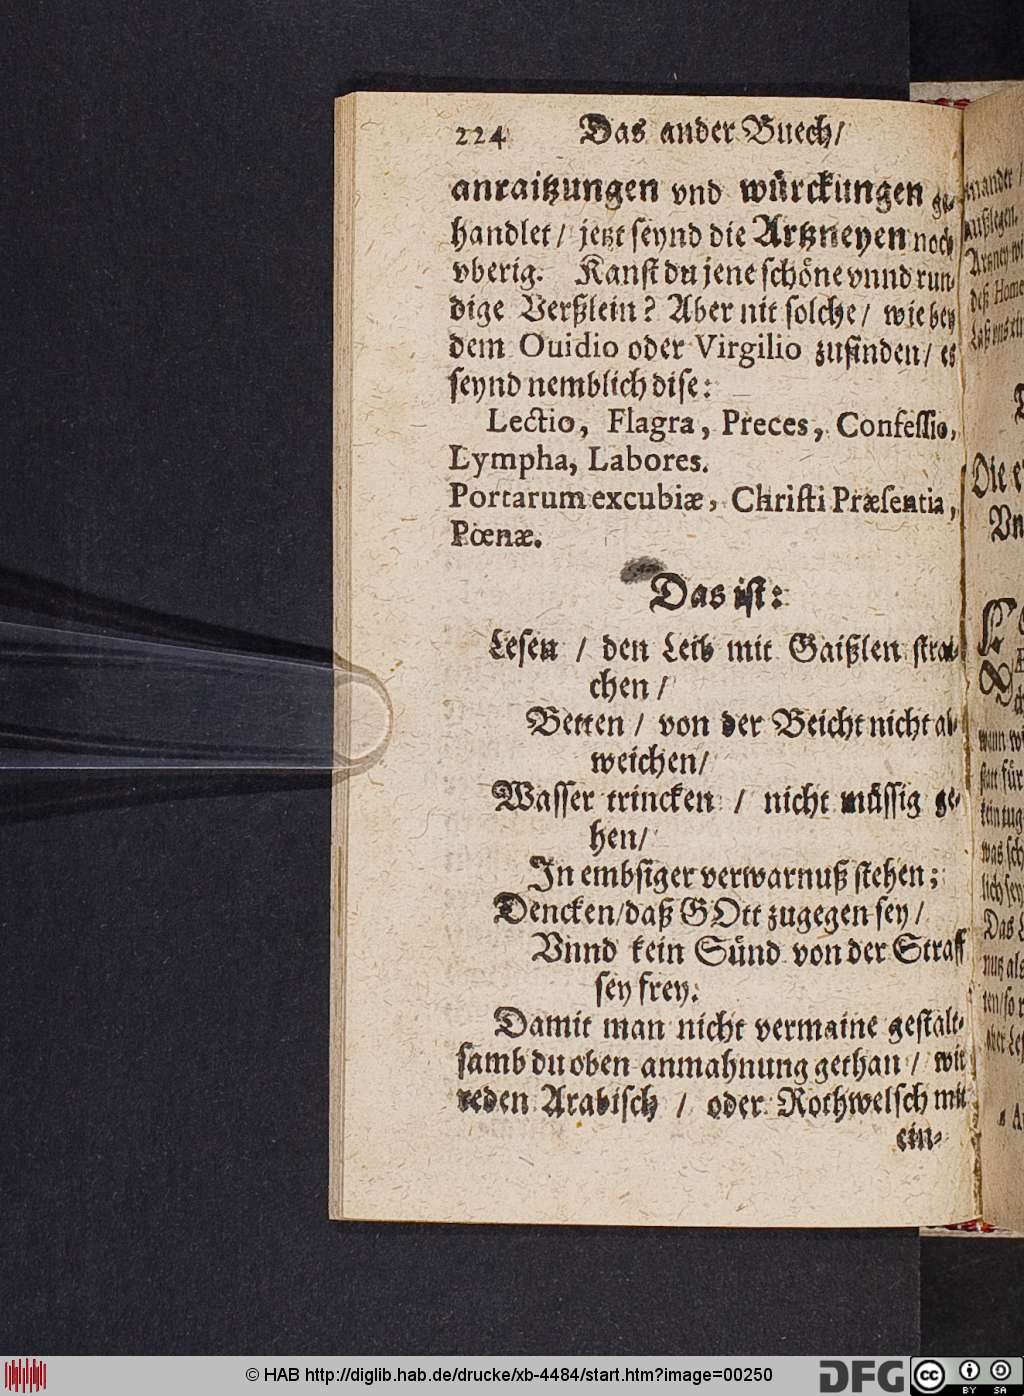 224 Das ander Buech/
anraitzungen vnd würckungen ge-
handlet/ jetzt seynd die Artzneyen noch
vberig. Kanst du jene schöne vnnd run-
dige Verßlein? Aber nit solche/ wie bey
dem Ouidio oder Virgilio zufinden/ es
seynd nemblich dise:
Lectio, Flagra, Preces, Confessio,
Lympha, Labores.
Portarum excubiæ, Christi Præsentia,
Pœnæ.
Das ist:
Lesen / den Leib mit Gaißlen strai-
chen /
Betten / von der Beicht nicht ab-
weichen/
Wasser trincken / nicht müssig ge-
hen/
In embsiger verwarnuß stehen;
Dencken/daß GOtt zugegen sey /
Vnnd kein Sünd von der Straff
sey frey.
Damit man nicht vermaine gestalt-
samb du oben anmahnung gethan / wir
reden Arabisch / oder Rothwelsch mit
ein-
inander /
außlegen.
Artzney wi
deß Home
Laß vns ein
Die e
Vn
wann wi
statt für
kein tug
was sch
lich sey
Das L
nutz ale
ten/so r
oder Les
© HAB http://diglib.hab.de/drucke/xb-4484/start.htm?image=00250
DFG
cc BY SA